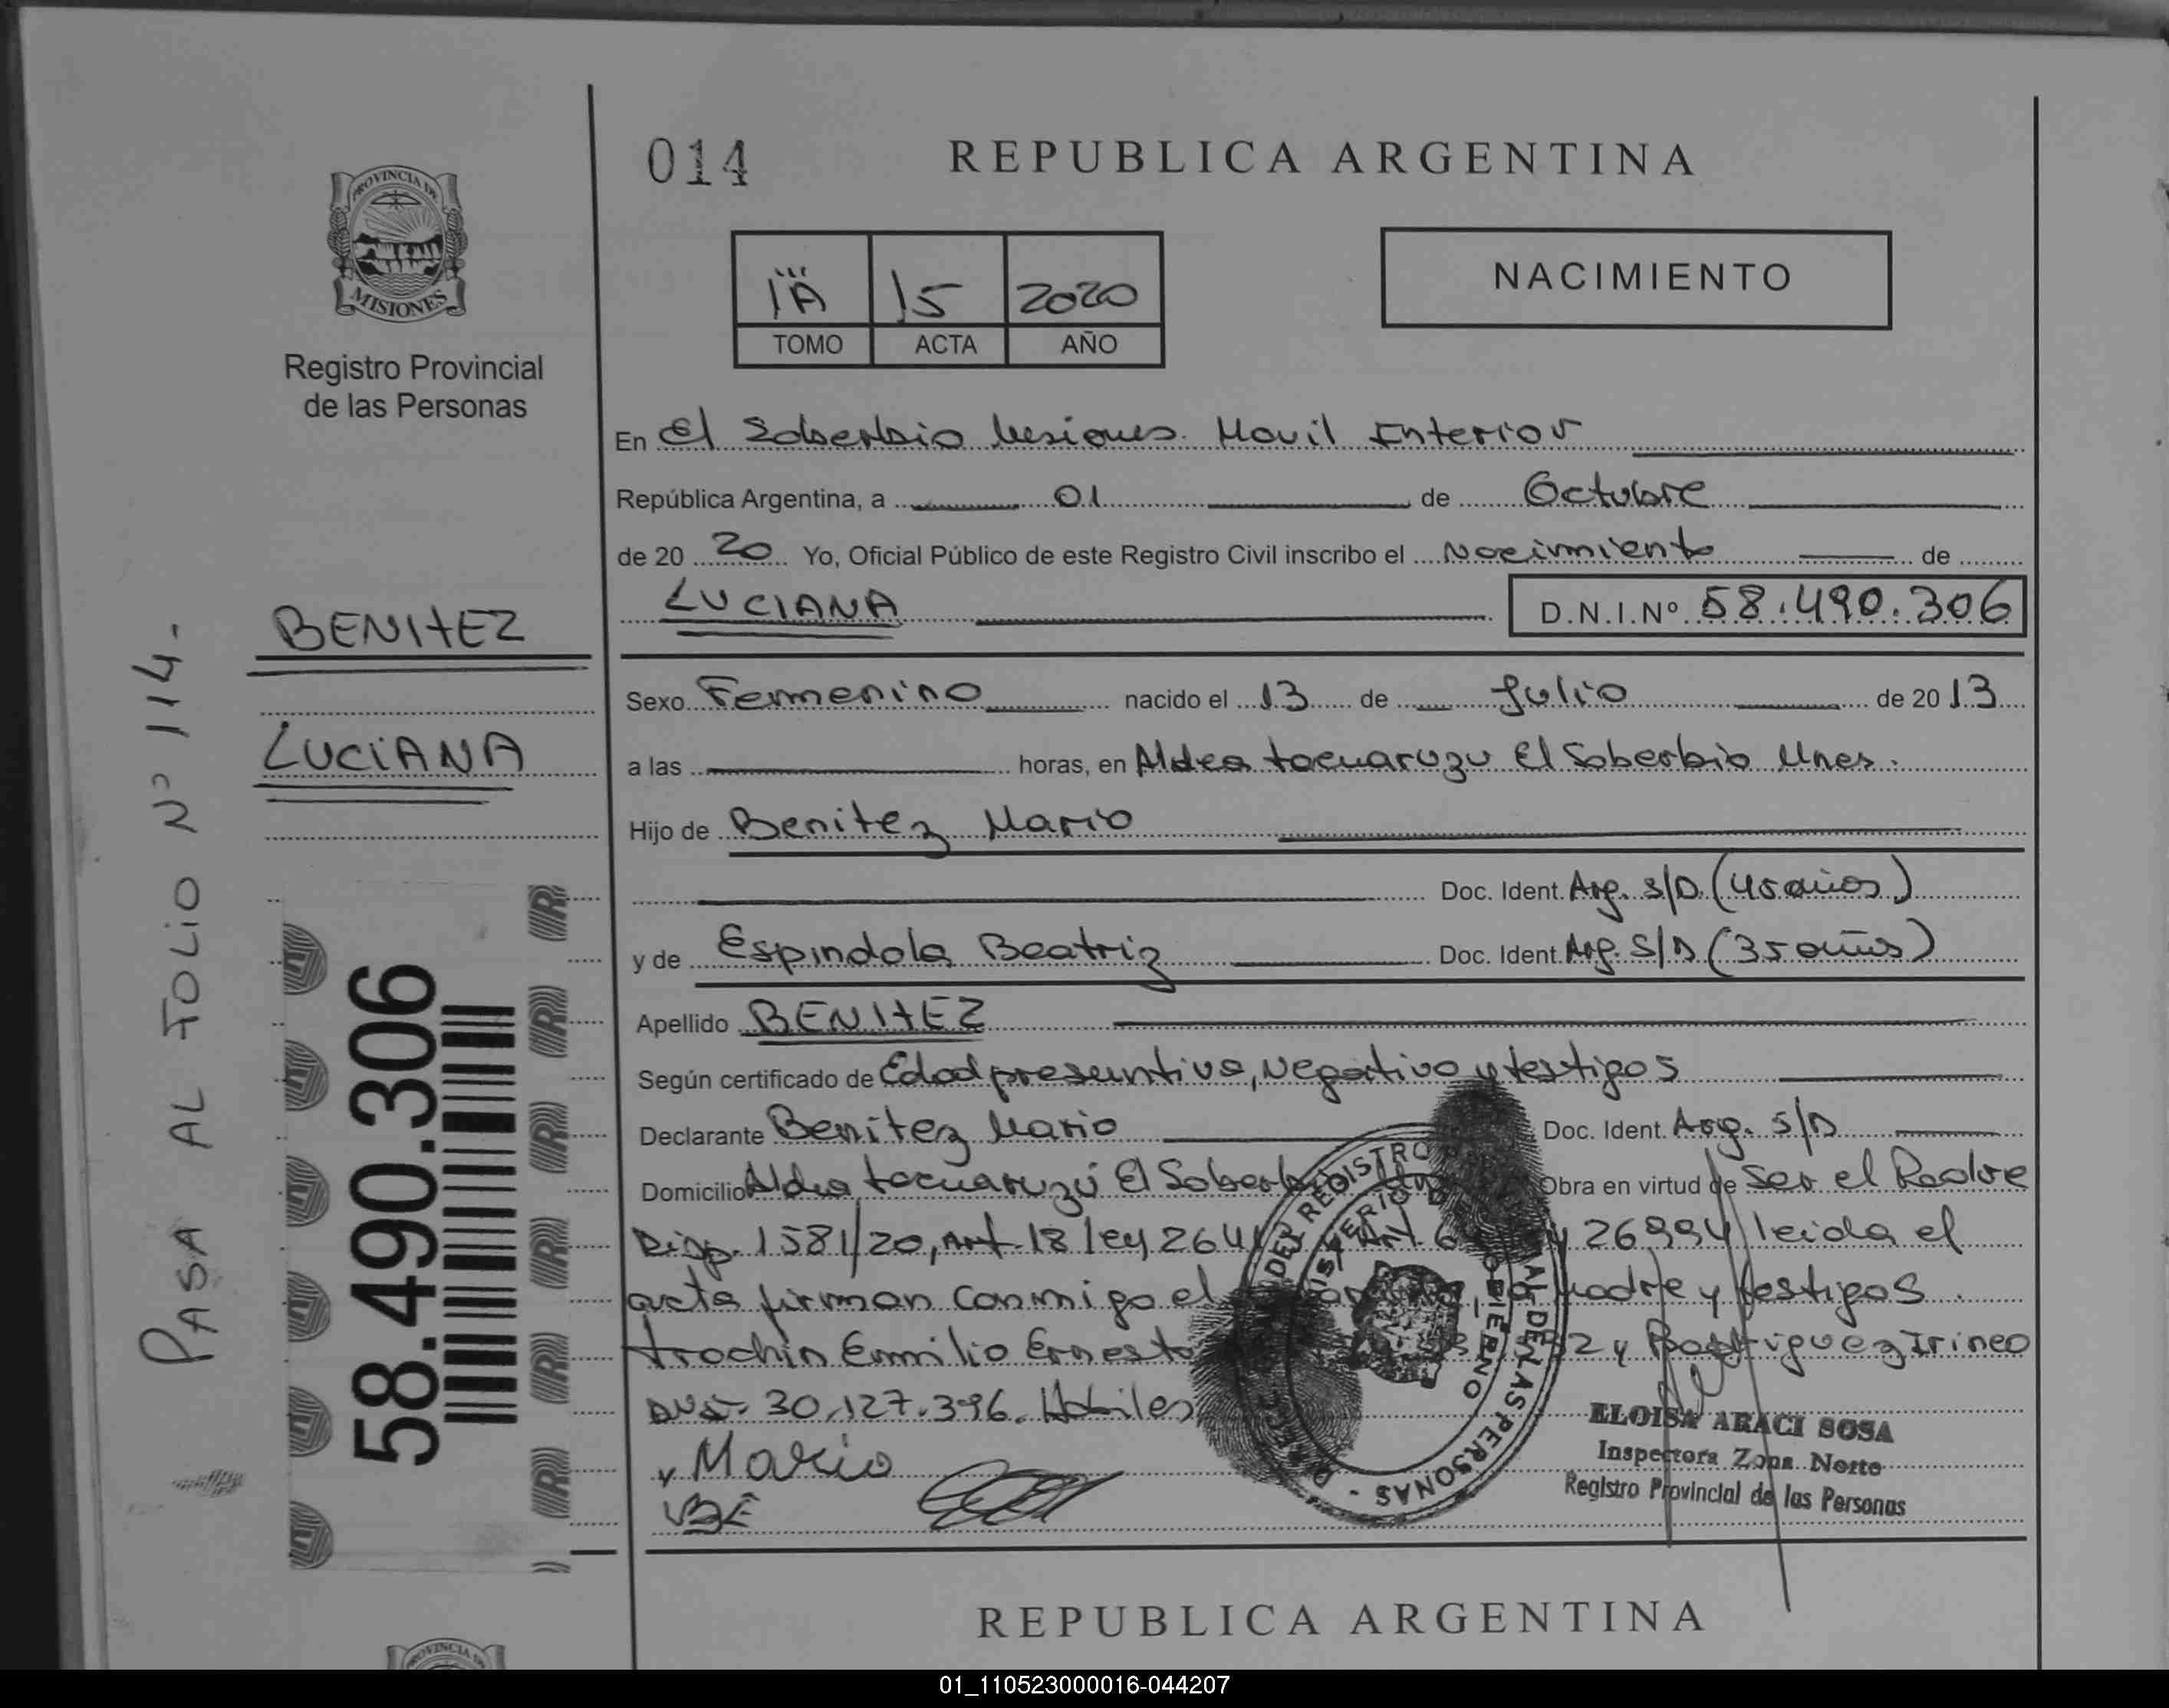 014
REPUBLICA ARGENTINA
PROVINCIA DE
MISIONES
Registro Provincial
de las Personas
15 2020
TOMO ACTA AÑO
NACIMIENTO
En El Soberbio Misiones. Movil Interior
República Argentina, a 01 de Octubre
de 20 20 Yo, Oficial Público de este Registro Civil inscribo el Nacimiento de
LUCIANA D.N.I.Nº 58.490.306
BENITEZ
LUCIANA
PASA AL FOLIO Nº 114.-
58.490.306
Sexo Femenino nacido el 13 de Julio de 20 13
a las horas, en Aldea tacuaruzu El Soberbio Mnes.
Hijo de Benitez Mario
Doc. Ident. Arg. S/D (45 años)
y de Espindola Beatriz Doc. Ident. Arg. S/D (35 años)
Apellido BENITEZ
Según certificado de Edad presuntiva, Negativo y testigos
Declarante Benitez Mario Doc. Ident. Arg. S/D
Domicilio Aldea tacuaruzú El Obra en virtud de Ser el Padre
Disp. 1581/20, Art. 18 ley 26994 leida el
acta firman conmigo el madre y testigos.
trochin Emilio Ernesto y Rodriguez Irineo
DNI- 30.127.396. Habiles
Mario
ELOISA ARACI SOSA
Inspectora Zona Norte
Registro Provincial de las Personas
REPUBLICA ARGENTINA
01_110523000016-044207